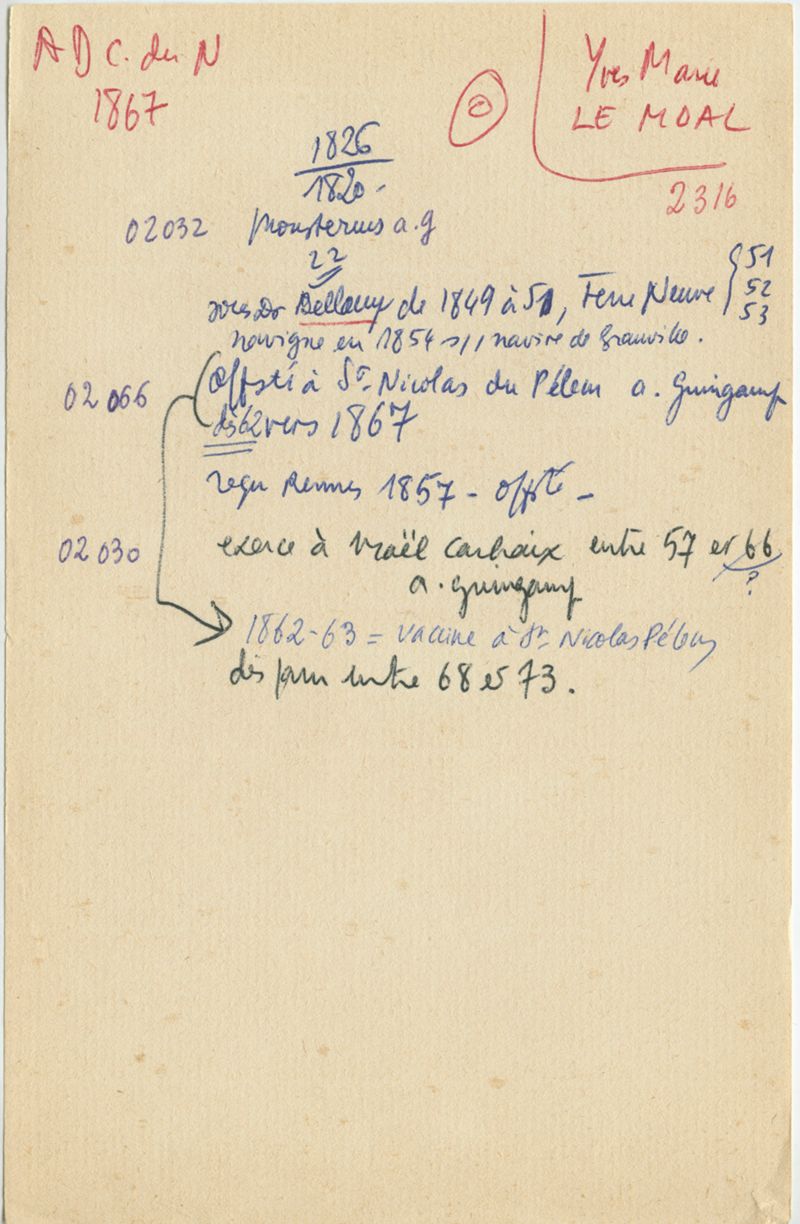 A D C. du N
1867
Yves Marie
LE MOAL
2316
1826
1820 -
02032 Moustерus a. g
22
sous Dr Bellamy de 1849 à 51, Terre Neuve { 51
52
53
navigue en 1854 s/ navire de Granville.
02 066 (Offsté à St-Nicolas du Pélem a. Guingamp
dès 62 vers 1867
reçu Rennes 1857 - offté -
02 030 exerce à Maël Carhaix entre 57 et 66
?
a. Guingamp
1862-63 = vaccine à St Nicolas Pélem
disparu entre 68 et 73.